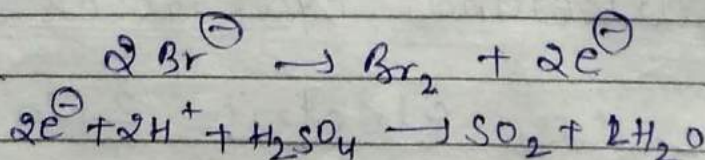 2 Br⊖ → Br₂ + 2e⊖
2e⊖ + 2H⁺ + H₂SO₄ → SO₂ + 2H₂O